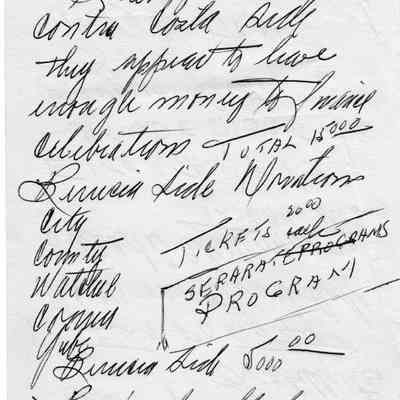 contra Costa side
they appear to have
enough money to finance
celebrations TOTAL 15000
Benicia Side Donations
City
County
TICKETS 2000 each
SEPARATE PROGRAMS
PROGRAM
Benicia Side 5000 00